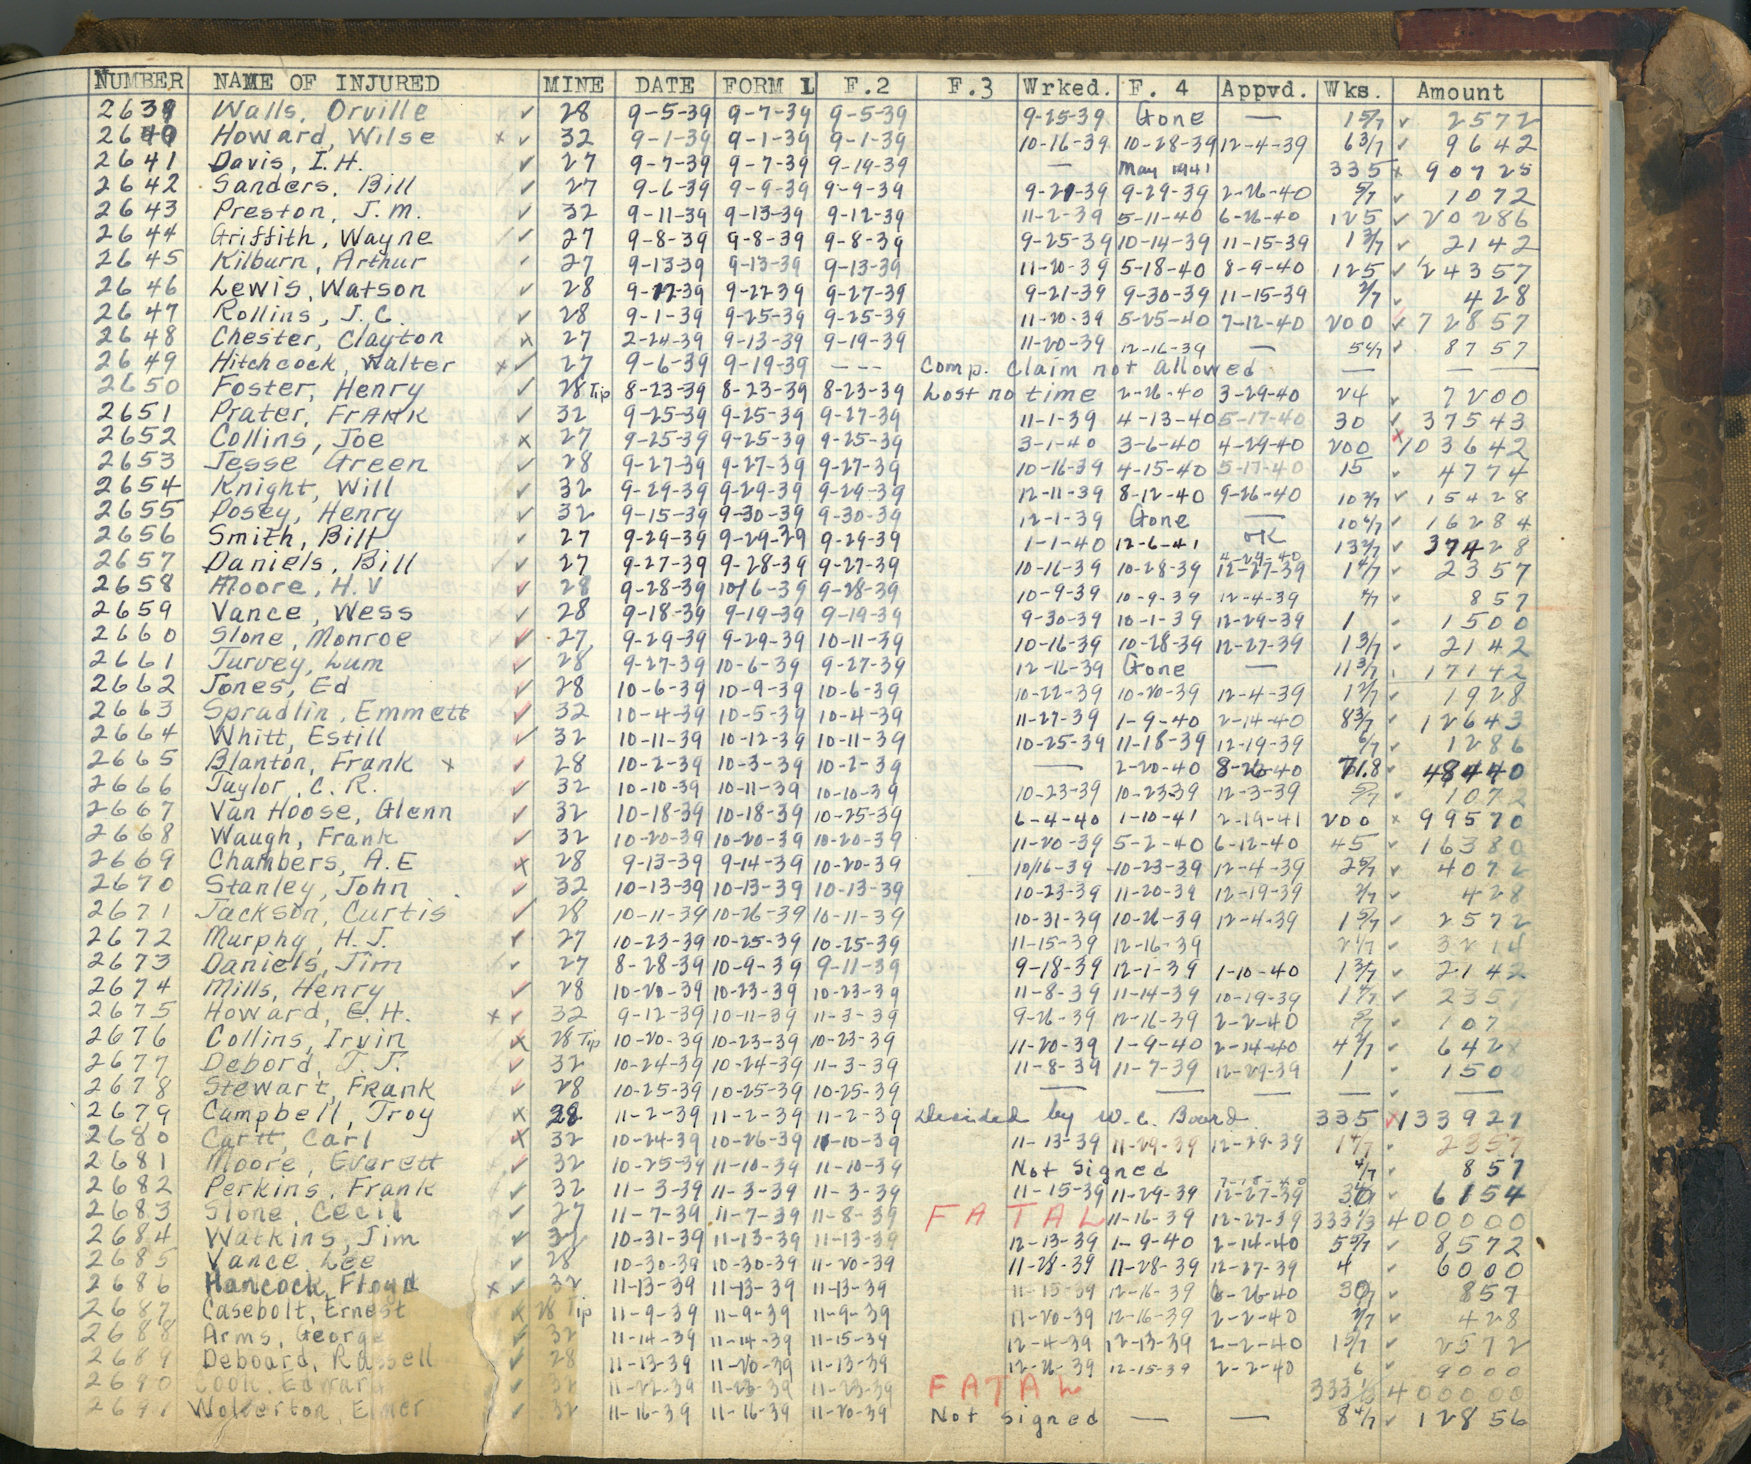 NUMBER NAME OF INJURED MINE DATE FORM 1 F.2 F.3 Wrked. F. 4 Appvd. Wks. Amount
2639 Walls, Orville ✓ 28 9-5-39 9-7-39 9-5-39 9-25-39 Gone — 1 5/7 ✓ 2572
2640 Howard, Wilse x ✓ 32 9-1-39 9-1-39 9-1-39 10-16-39 10-28-39 12-4-39 6 3/7 ✓ 9642
2641 Davis, I.H. ✓ 27 9-7-39 9-7-39 9-19-39 — May 1941 335 x 90725
2642 Sanders, Bill ✓ 27 9-6-39 9-9-39 9-9-39 9-21-39 9-29-39 2-26-40 5/7 ✓ 1072
2643 Preston, J.M. ✓ 32 9-11-39 9-13-39 9-12-39 11-2-39 5-11-40 6-26-40 125 ✓ 20286
2644 Griffith, Wayne ✓ 27 9-8-39 9-8-39 9-8-39 9-25-39 10-14-39 11-15-39 1 3/7 ✓ 2142
2645 Kilburn, Arthur ✓ 27 9-13-39 9-13-39 9-13-39 11-20-39 5-18-40 8-9-40 125 ✓ 24357
2646 Lewis, Watson ✓ 28 9-12-39 9-22-39 9-27-39 9-21-39 9-30-39 11-15-39 2/7 ✓ 428
2647 Rollins, J.C. ✓ 28 9-1-39 9-25-39 9-25-39 11-20-39 5-25-40 7-12-40 200 ✓ 72857
2648 Chester, Clayton x 27 2-24-39 9-13-39 9-19-39 11-20-39 12-16-39 — 5 6/7 ✓ 8757
2649 Hitchcock, Walter x ✓ 27 9-6-39 9-19-39 --- Comp. Claim not allowed — —
2650 Foster, Henry ✓ 28 Tip 8-23-39 8-23-39 8-23-39 Lost no time 2-26-40 3-29-40 24 ✓ 7200
2651 Prater, FrANK ✓ 32 9-25-39 9-25-39 9-27-39 11-1-39 4-13-40 5-17-40 30 ✓ 37543
2652 Collins, Joe x 27 9-25-39 9-25-39 9-25-39 3-1-40 3-6-40 4-29-40 200 x 103642
2653 Jesse Green ✓ 28 9-27-39 9-27-39 9-27-39 10-16-39 4-15-40 5-17-40 15 ✓ 4774
2654 Knight, Will ✓ 32 9-29-39 9-29-39 9-29-39 12-11-39 8-12-40 9-26-40 10 2/7 ✓ 15428
2655 Posey, Henry ✓ 32 9-15-39 9-30-39 9-30-39 12-1-39 Gone — 10 6/7 ✓ 16284
2656 Smith, Bill ✓ 27 9-29-39 9-29-39 9-29-39 1-1-40 12-6-41 OK 13 2/7 ✓ 37428
2657 Daniels, Bill ✓ 27 9-27-39 9-28-39 9-27-39 10-16-39 10-28-39 4-29-40 12-27-39 1 4/7 ✓ 2357
2658 Moore, H.V ✓ 28 9-28-39 10/6-39 9-28-39 10-9-39 10-9-39 12-4-39 4/7 ✓ 857
2659 Vance, Wess ✓ 28 9-18-39 9-19-39 9-19-39 9-30-39 10-1-39 12-29-39 1 ✓ 1500
2660 Slone, Monroe ✓ 27 9-29-39 9-29-39 10-11-39 10-16-39 10-28-39 12-27-39 1 3/7 ✓ 2142
2661 Turvey, Lum ✓ 28 9-27-39 10-6-39 9-27-39 12-16-39 Gone — 11 3/7 17142
2662 Jones, Ed ✓ 28 10-6-39 10-9-39 10-6-39 10-22-39 10-20-39 12-4-39 1 2/7 ✓ 1928
2663 Spradlin, Emmett ✓ 32 10-4-39 10-5-39 10-4-39 11-27-39 1-9-40 2-14-40 8 3/7 ✓ 12643
2664 Whitt, Estill ✓ 32 10-11-39 10-12-39 10-11-39 10-25-39 11-18-39 12-19-39 6/7 ✓ 1286
2665 Blanton, Frank x ✓ 28 10-2-39 10-3-39 10-2-39 — 2-20-40 8-26-40 71.8 48440
2666 Taylor, C.R. ✓ 32 10-10-39 10-11-39 10-10-39 10-23-39 10-23-39 12-3-39 5/7 ✓ 1072
2667 Van Hoose, Glenn ✓ 32 10-18-39 10-18-39 10-25-39 6-4-40 1-10-41 2-19-41 200 x 99570
2668 Waugh, Frank ✓ 32 10-20-39 10-20-39 10-20-39 11-20-39 5-2-40 6-12-40 45 ✓ 16380
2669 Chambers, A.E x 28 9-13-39 9-14-39 10-20-39 10/16-39 10-23-39 12-4-39 2 5/7 ✓ 4072
2670 Stanley, John ✓ 32 10-13-39 10-13-39 10-13-39 10-23-39 11-20-39 12-19-39 2/7 ✓ 428
2671 Jackson, Curtis ✓ 28 10-11-39 10-26-39 10-11-39 10-31-39 10-26-39 12-4-39 1 5/7 ✓ 2572
2672 Murphy, H.J. ✓ 27 10-23-39 10-25-39 10-25-39 11-15-39 12-16-39 2 1/7 ✓ 3214
2673 Daniels, Jim ✓ 27 8-28-39 10-9-39 9-11-39 9-18-39 12-1-39 1-10-40 1 3/7 ✓ 2142
2674 Mills, Henry ✓ 28 10-20-39 10-23-39 10-23-39 11-8-39 11-14-39 10-19-39 1 4/7 ✓ 2357
2675 Howard, E.H. x ✓ 32 9-12-39 10-11-39 11-3-39 9-26-39 12-16-39 2-2-40 5/7 ✓ 107
2676 Collins, Irvin x 28 Tip 10-20-39 10-23-39 10-23-39 11-20-39 1-9-40 2-14-40 4 2/7 ✓ 642
2677 Debord, J.J. ✓ 32 10-24-39 10-24-39 11-3-39 11-8-39 11-7-39 12-29-39 1 1500
2678 Stewart, FRank ✓ 28 10-25-39 10-25-39 10-25-39 — — — — —
2679 Campbell, Troy x 28 11-2-39 11-2-39 11-2-39 Decided by W.C. Board 335 x 133921
2680 Carl x 32 10-24-39 10-26-39 11-10-39 11-13-39 11-29-39 12-29-39 1 4/7 ✓ 2357
2681 Moore, Everett ✓ 32 10-25-39 11-10-39 11-10-39 Not Signed 4/7 ✓ 857
2682 Perkins, Frank ✓ 32 11-3-39 11-3-39 11-3-39 11-15-39 11-29-39 7-18-40 12-27-39 ✓ 6154
2683 Slone, Cecil ✓ 27 11-7-39 11-7-39 11-8-39 FATAL 11-16-39 12-27-39 333 1/3 400000
2684 Watkins, Jim ✓ 32 10-31-39 11-13-39 11-13-39 12-13-39 1-9-40 2-14-40 5 5/7 ✓ 8572
2685 Vance, Lee ✓ 28 10-30-39 10-30-39 11-20-39 11-28-39 11-28-39 12-27-39 4 ✓ 6000
2686 Hancock, Floyd x ✓ 32 11-13-39 11-13-39 11-13-39 11-15-39 12-16-39 6-26-40 ✓ 857
2687 Casebolt, Ernest x 28 Tip 11-9-39 11-9-39 11-9-39 11-20-39 12-16-39 2-2-40 2/7 ✓ 428
2688 Arms, George ✓ 32 11-14-39 11-14-39 11-15-39 12-4-39 12-13-39 2-2-40 1 5/7 ✓ 2572
2689 Deboard, Russell ✓ 28 11-13-39 11-20-39 11-13-39 12-26-39 12-15-39 2-2-40 6 ✓ 9000
2690 Cook, Edward ✓ 32 11-22-39 11-23-39 11-23-39 FATAL 333 1/3 400000
2691 Wolverton, Elmer ✓ 32 11-16-39 11-16-39 11-20-39 Not Signed — — 8 4/7 ✓ 12856